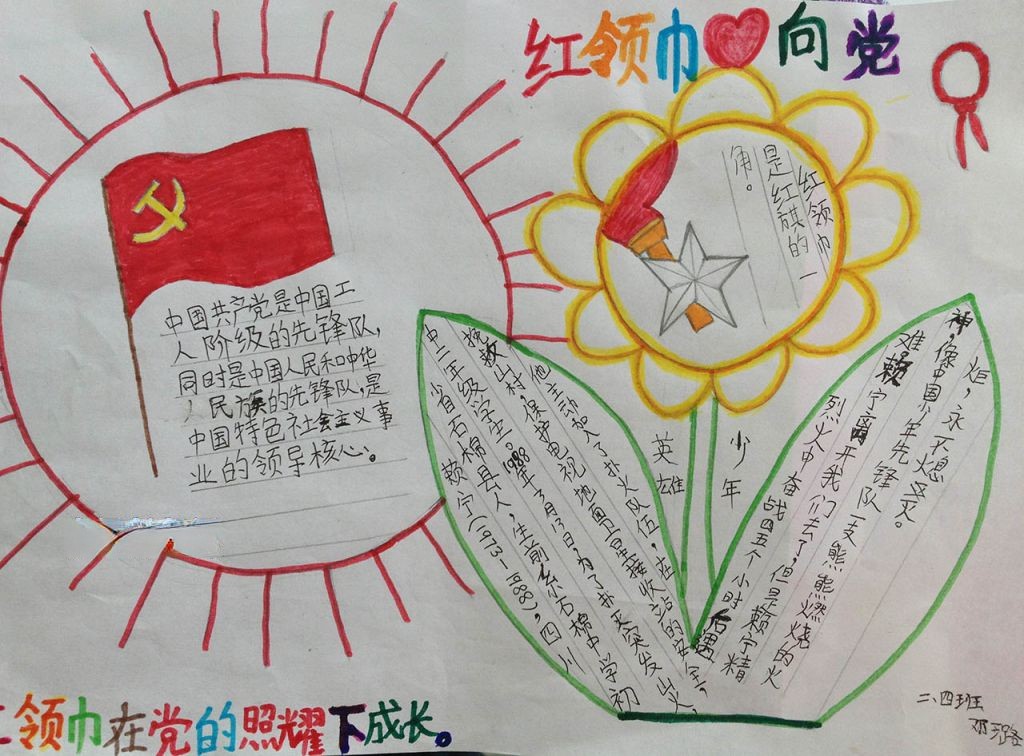 红领巾向党
中国共产党是中国工
人阶级的先锋队,
同时是中国人民和中华
人民族的先锋队,是
中国特色社会主义事
业的领导核心。
红领巾
是红旗的一
角。
少年
英雄
赖宁(1973-1988),四川
省石棉县人,生前系石棉中学初
中二年级学生。1988年3月13日,为了扑灭突发山火,
挽救山村,保护电视地面卫星接收站的安全,
他主动加入了扑火队伍,在
烈火中奋战四五个小时后遇
难。赖宁离开我们去了,但是赖宁精
神,像中国少年先锋队一支熊熊燃烧的火
炬,永不熄灭。
领巾在党的照耀下成长。
二、四班